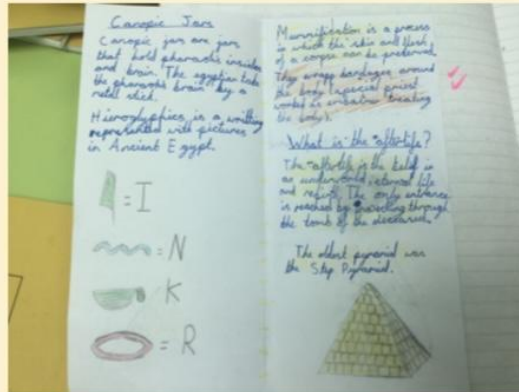 Canopic Jars
Canopic jars are jars
that hold pharaohs insides
and brain. The egyptian take
the pharaohs brain by a
metal stick.
Hieroglyphics is a writing
represented with pictures
in Ancient Egypt.
= I
= N
= K
= R
Mummification is a process
in which the skin and flesh
of a corpse can be preserved.
They wrapp bandages around
the body (a special priest
worked as embalmer treating
the body).
What is the "afterlife"?
The "afterlife" is the belief in
an underworld, eternal life
and rebirth. The only entrance
is reached by travelling through
the tomb of the deceased.
The oldest pyramid was
the Step Pyramid.